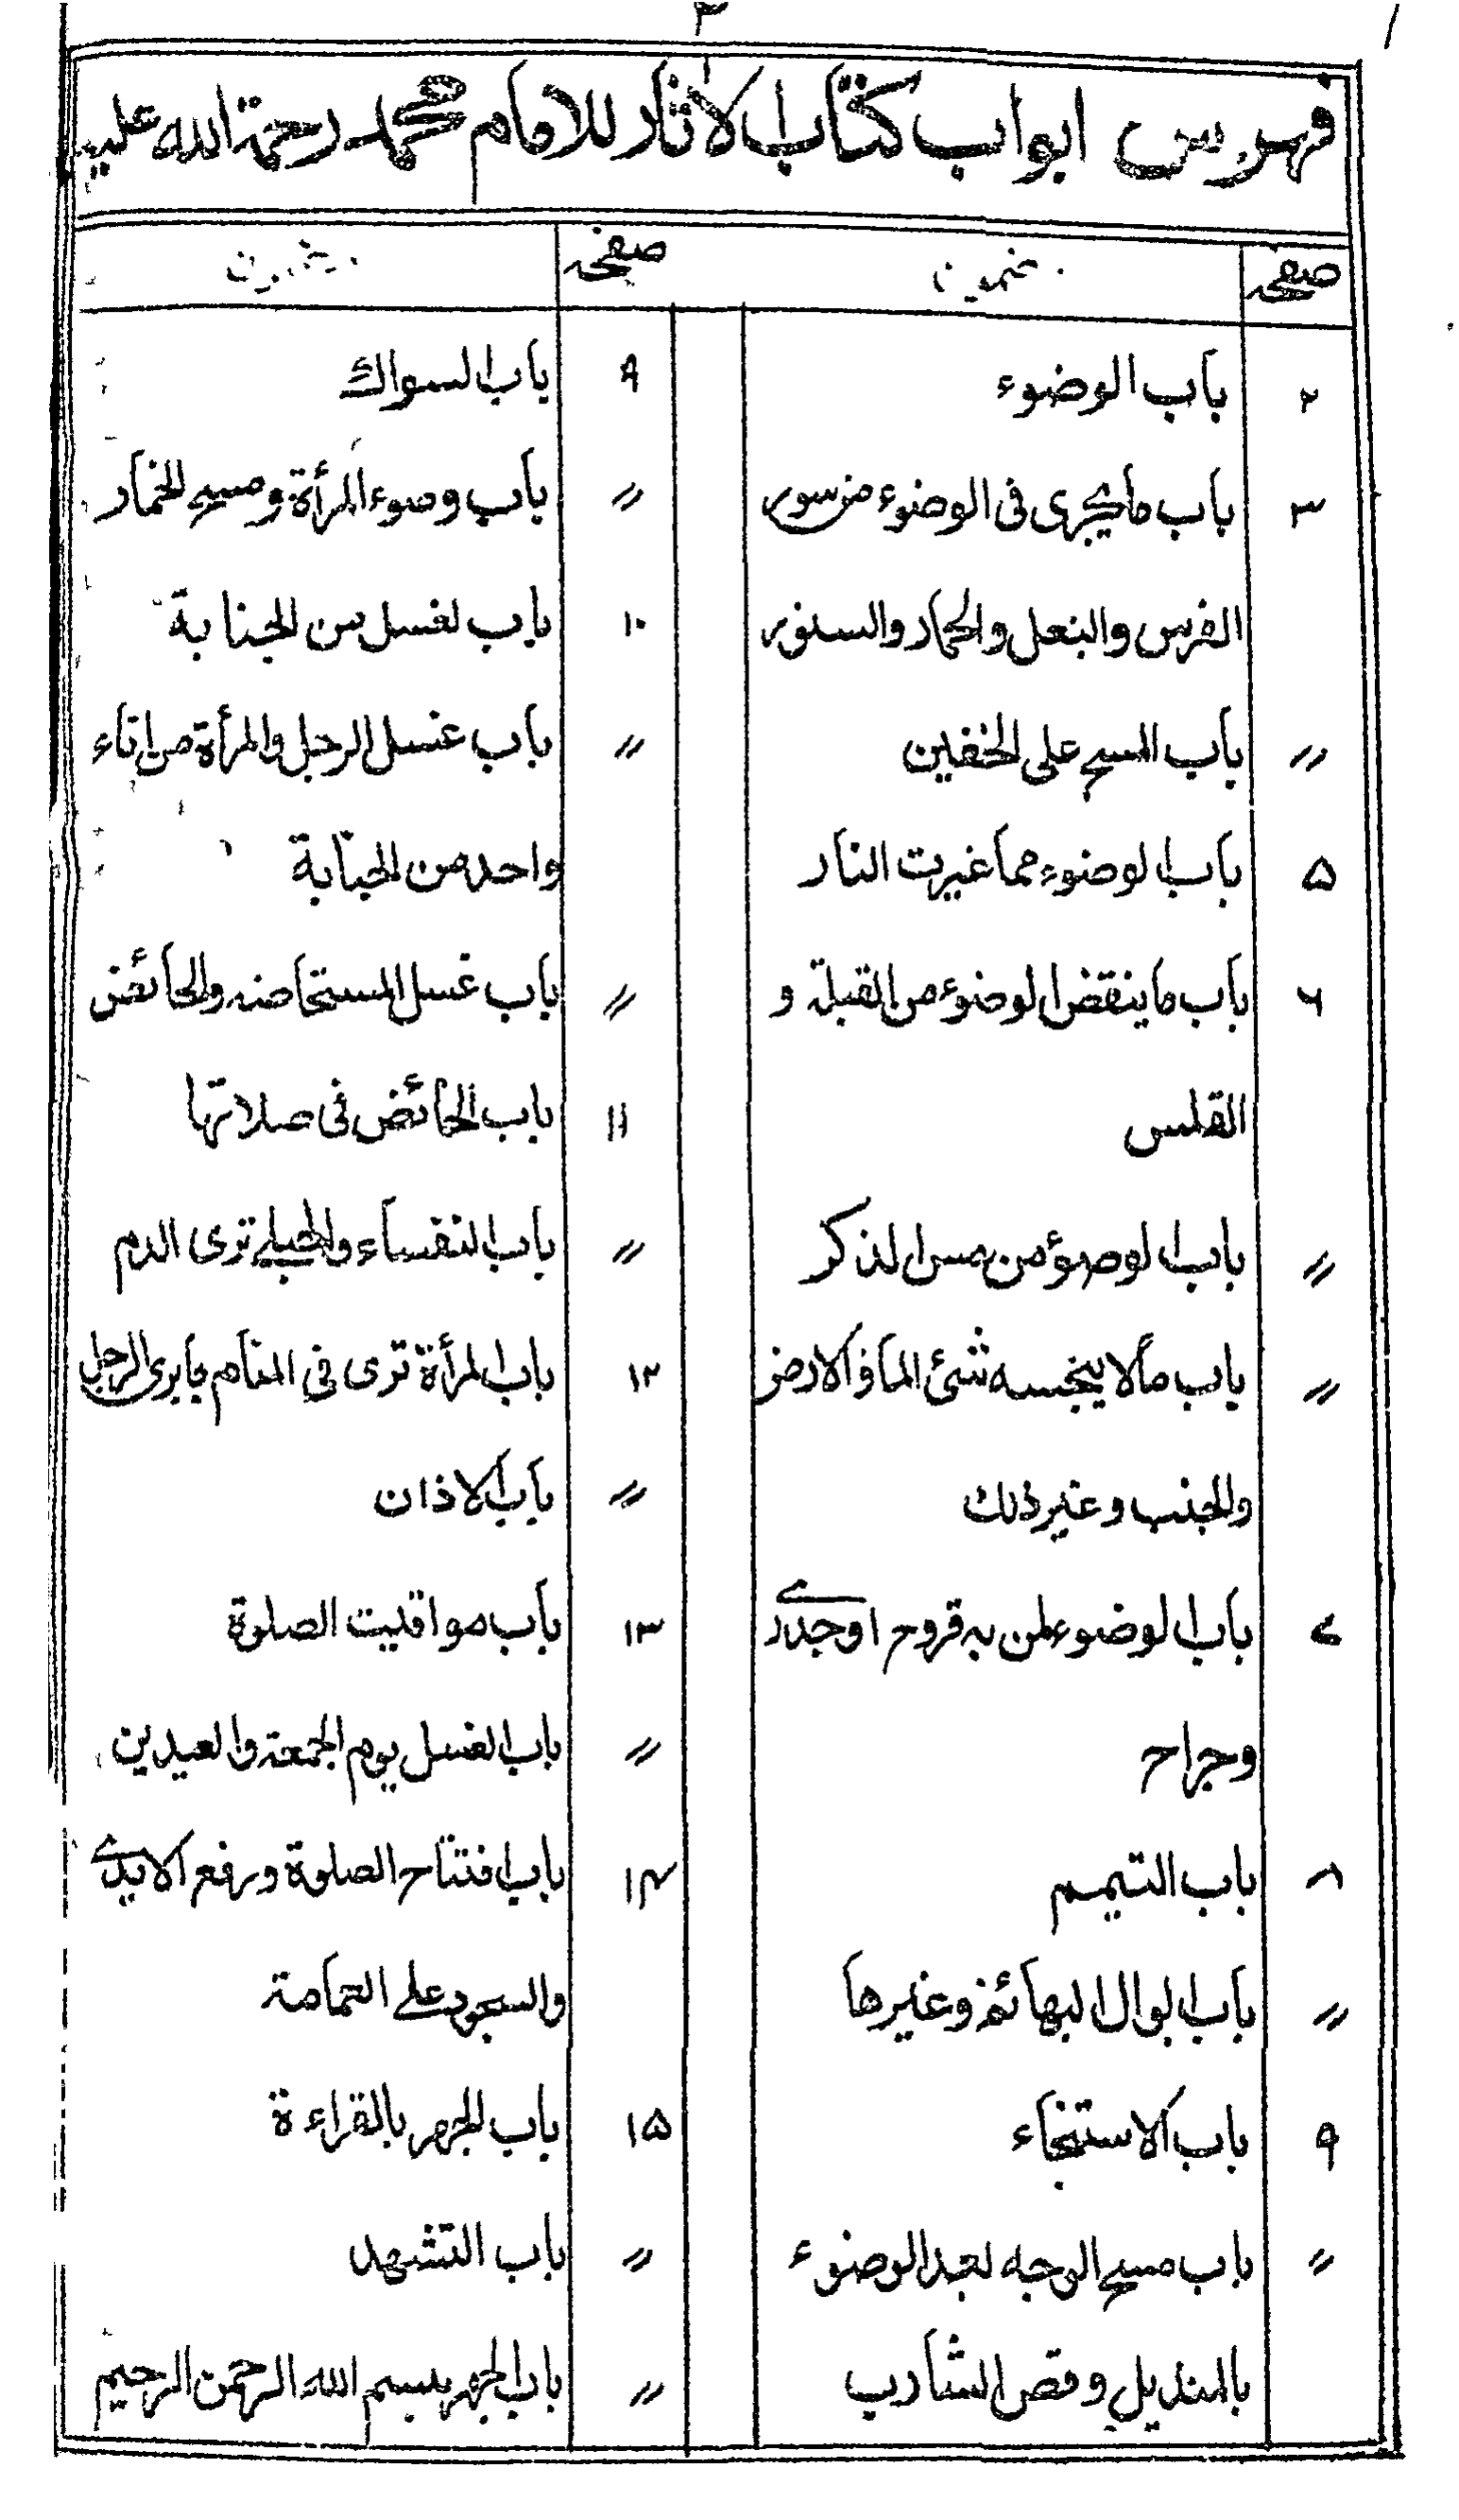 ۲
فهرس ابواب كتاب الاثار للامام محمد رحمة الله عليه
صفحه مضمون
۲ باب الوضوء
۳ باب ما يجزى فى الوضوء من سور
الفرس والبغل والحمار والسنور
〃 باب المسح على الخفين
۵ باب الوضوء مما غيرت النار
۶ باب ما ينقض الوضوء من القبلة و
القلس
〃 باب الوضوء من مس الذكر
〃 باب مالا ينجسه شئ الماء والارض
والجنب وغير ذلك
۷ باب الوضوء لمن به قروح او جدرى
وجراح
۸ باب التيمم
〃 باب ابوال البهائم وغيرها
۹ باب الاستنجاء
〃 باب مسح الوجه بعد الوضوء
بالمنديل وقص الشارب
صفحه مضمون
۹ باب السواك
〃 باب وضوء المرأة ومسح الخمار
۱۰ باب لغسل من الجنابة
〃 باب غسل الرجل والمرأة من اناء
واحد من الجنابة
〃 باب غسل المستحاضه والحائض
۱۱ باب الحائض فى صلاتها
〃 باب النفساء والحبلى ترى الدم
۱۲ باب المرأة ترى فى المنام ما يرى الرجل
〃 باب الاذان
۱۳ باب مواقيت الصلوة
〃 باب الغسل يوم الجمعة والعيدين
۱۴ باب افتتاح الصلوة ورفع الايدى
والسجود على العمامة
۱۵ باب الجهر بالقراءة
〃 باب التشهد
〃 باب الجهر ببسم الله الرحمن الرحيم